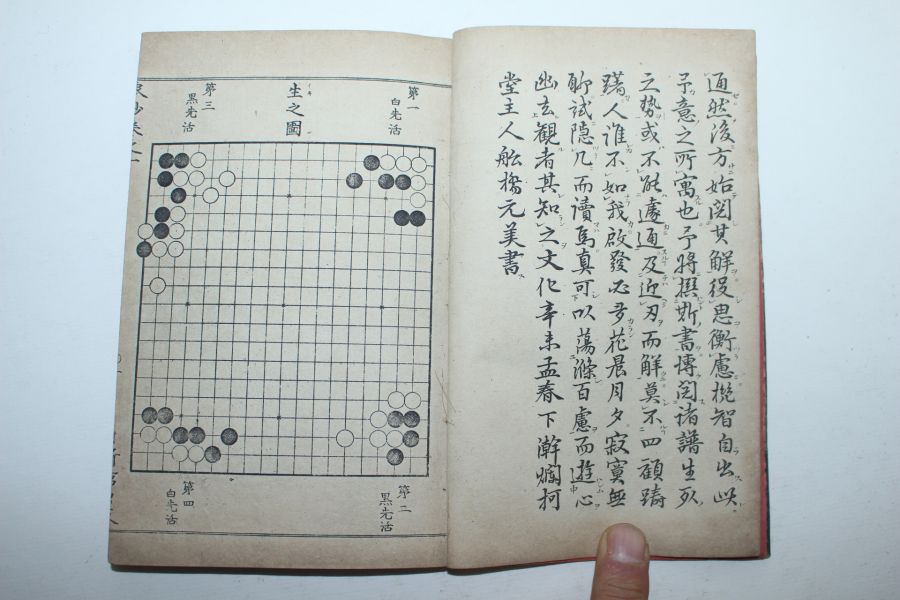 通然後方始閲其解役思衡慮機智自出此
予意之所寓也予将撰斯書博閲諸譜生死
之勢或不能遽通及近刃而解莫不四顧躊
躇人誰不如我啟發必多花晨月夕寂寞無
聊試隠几而讀焉真可以蕩滌百慮而遊心
幽玄観者其知之文化辛未孟春下澣爛柯
堂主人舩橋元美書
第一
白先活
生之圖
第三
黒先活
第二
黒先活
第四
白先活